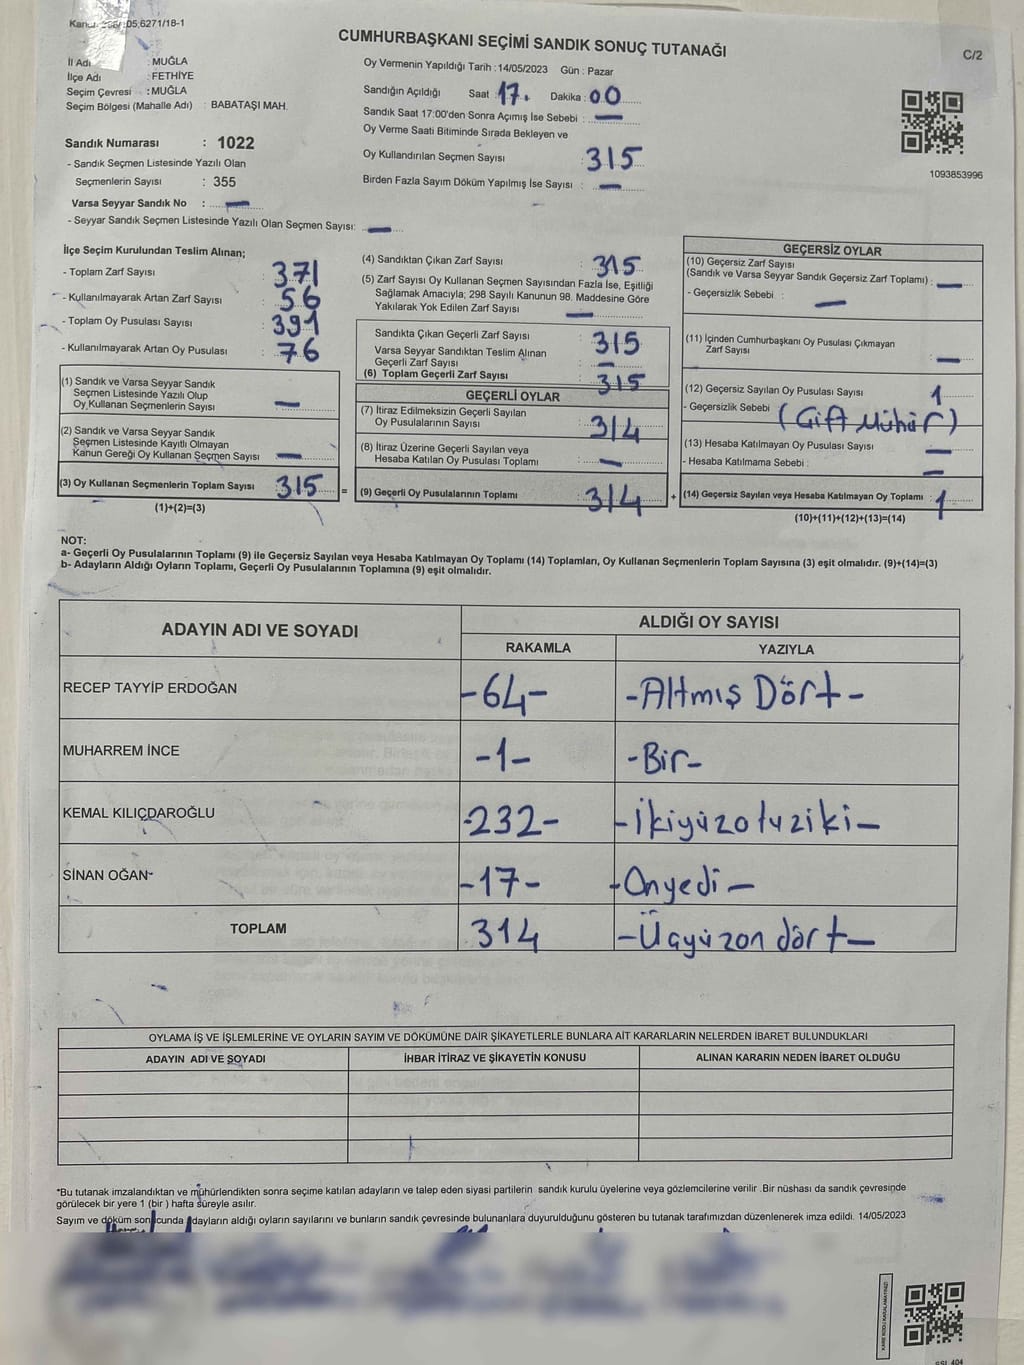 CUMHURBAŞKANI SEÇİMİ SANDIK SONUÇ TUTANAĞI
C/2
İl Adı : MUĞLA
İlçe Adı : FETHİYE
Seçim Çevresi : MUĞLA
Seçim Bölgesi (Mahalle Adı) : BABATAŞI MAH.
Sandık Numarası : 1022
- Sandık Seçmen Listesinde Yazılı Olan
Seçmenlerin Sayısı : 355
Varsa Seyyar Sandık No : —
- Seyyar Sandık Seçmen Listesinde Yazılı Olan Seçmen Sayısı: —
Oy Vermenin Yapıldığı Tarih : 14/05/2023 Gün : Pazar
Sandığın Açıldığı Saat : 17. Dakika : 00
Sandık Saat 17:00'den Sonra Açımış İse Sebebi : —
Oy Verme Saati Bitiminde Sırada Bekleyen ve
Oy Kullandırılan Seçmen Sayısı : 315
Birden Fazla Sayım Döküm Yapılmış İse Sayısı : —
1093853996
İlçe Seçim Kurulundan Teslim Alınan;
- Toplam Zarf Sayısı : 371
- Kullanılmayarak Artan Zarf Sayısı : 56
- Toplam Oy Pusulası Sayısı : 391
- Kullanılmayarak Artan Oy Pusulası : 76
(1) Sandık ve Varsa Seyyar Sandık
Seçmen Listesinde Yazılı Olup
Oy Kullanan Seçmenlerin Sayısı : —
(2) Sandık ve Varsa Seyyar Sandık
Seçmen Listesinde Kayıtlı Olmayan
Kanun Gereği Oy Kullanan Seçmen Sayısı : —
(3) Oy Kullanan Seçmenlerin Toplam Sayısı : 315 =
(1)+(2)=(3)
(4) Sandıktan Çıkan Zarf Sayısı : 315
(5) Zarf Sayısı Oy Kullanan Seçmen Sayısından Fazla İse, Eşitliği
Sağlamak Amacıyla; 298 Sayılı Kanunun 98. Maddesine Göre
Yakılarak Yok Edilen Zarf Sayısı : —
Sandıkta Çıkan Geçerli Zarf Sayısı : 315
Varsa Seyyar Sandıktan Teslim Alınan
Geçerli Zarf Sayısı : —
(6) Toplam Geçerli Zarf Sayısı : 315
GEÇERLİ OYLAR
(7) İtiraz Edilmeksizin Geçerli Sayılan
Oy Pusulalarının Sayısı : 314
(8) İtiraz Üzerine Geçerli Sayılan veya
Hesaba Katılan Oy Pusulası Toplamı : —
(9) Geçerli Oy Pusulalarının Toplamı : 314 +
GEÇERSİZ OYLAR
(10) Geçersiz Zarf Sayısı
(Sandık ve Varsa Seyyar Sandık Geçersiz Zarf Toplamı) : —
- Geçersizlik Sebebi : —
(11) İçinden Cumhurbaşkanı Oy Pusulası Çıkmayan
Zarf Sayısı : —
(12) Geçersiz Sayılan Oy Pusulası Sayısı : 1
- Geçersizlik Sebebi : (Çift Mühür)
(13) Hesaba Katılmayan Oy Pusulası Sayısı : —
- Hesaba Katılmama Sebebi : —
(14) Geçersiz Sayılan veya Hesaba Katılmayan Oy Toplamı : 1
(10)+(11)+(12)+(13)=(14)
NOT:
a- Geçerli Oy Pusulalarının Toplamı (9) ile Geçersiz Sayılan veya Hesaba Katılmayan Oy Toplamı (14) Toplamları, Oy Kullanan Seçmenlerin Toplam Sayısına (3) eşit olmalıdır. (9)+(14)=(3)
b- Adayların Aldığı Oyların Toplamı, Geçerli Oy Pusulalarının Toplamına (9) eşit olmalıdır.
ADAYIN ADI VE SOYADI ALDIĞI OY SAYISI
RAKAMLA YAZIYLA
RECEP TAYYİP ERDOĞAN -64- -Altmış Dört-
MUHARREM İNCE -1- -Bir-
KEMAL KILIÇDAROĞLU -232- -İkiyüzotuziki-
SİNAN OĞAN -17- -Onyedi-
TOPLAM 314 -Üçyüzon dört-
OYLAMA İŞ VE İŞLEMLERİNE VE OYLARIN SAYIM VE DÖKÜMÜNE DAİR ŞİKAYETLERLE BUNLARA AİT KARARLARIN NELERDEN İBARET BULUNDUKLARI
ADAYIN ADI VE SOYADI İHBAR İTİRAZ VE ŞİKAYETİN KONUSU ALINAN KARARIN NEDEN İBARET OLDUĞU
*Bu tutanak imzalandıktan ve mühürlendikten sonra seçime katılan adayların ve talep eden siyasi partilerin sandık kurulu üyelerine veya gözlemcilerine verilir .Bir nüshası da sandık çevresinde
görülecek bir yere 1 (bir ) hafta süreyle asılır.
Sayım ve döküm sonucunda Adayların aldığı oyların sayılarını ve bunların sandık çevresinde bulunanlara duyurulduğunu gösteren bu tutanak tarafımızdan düzenlenerek imza edildi. 14/05/2023
KARE KODU KARALAMAYINIZ!